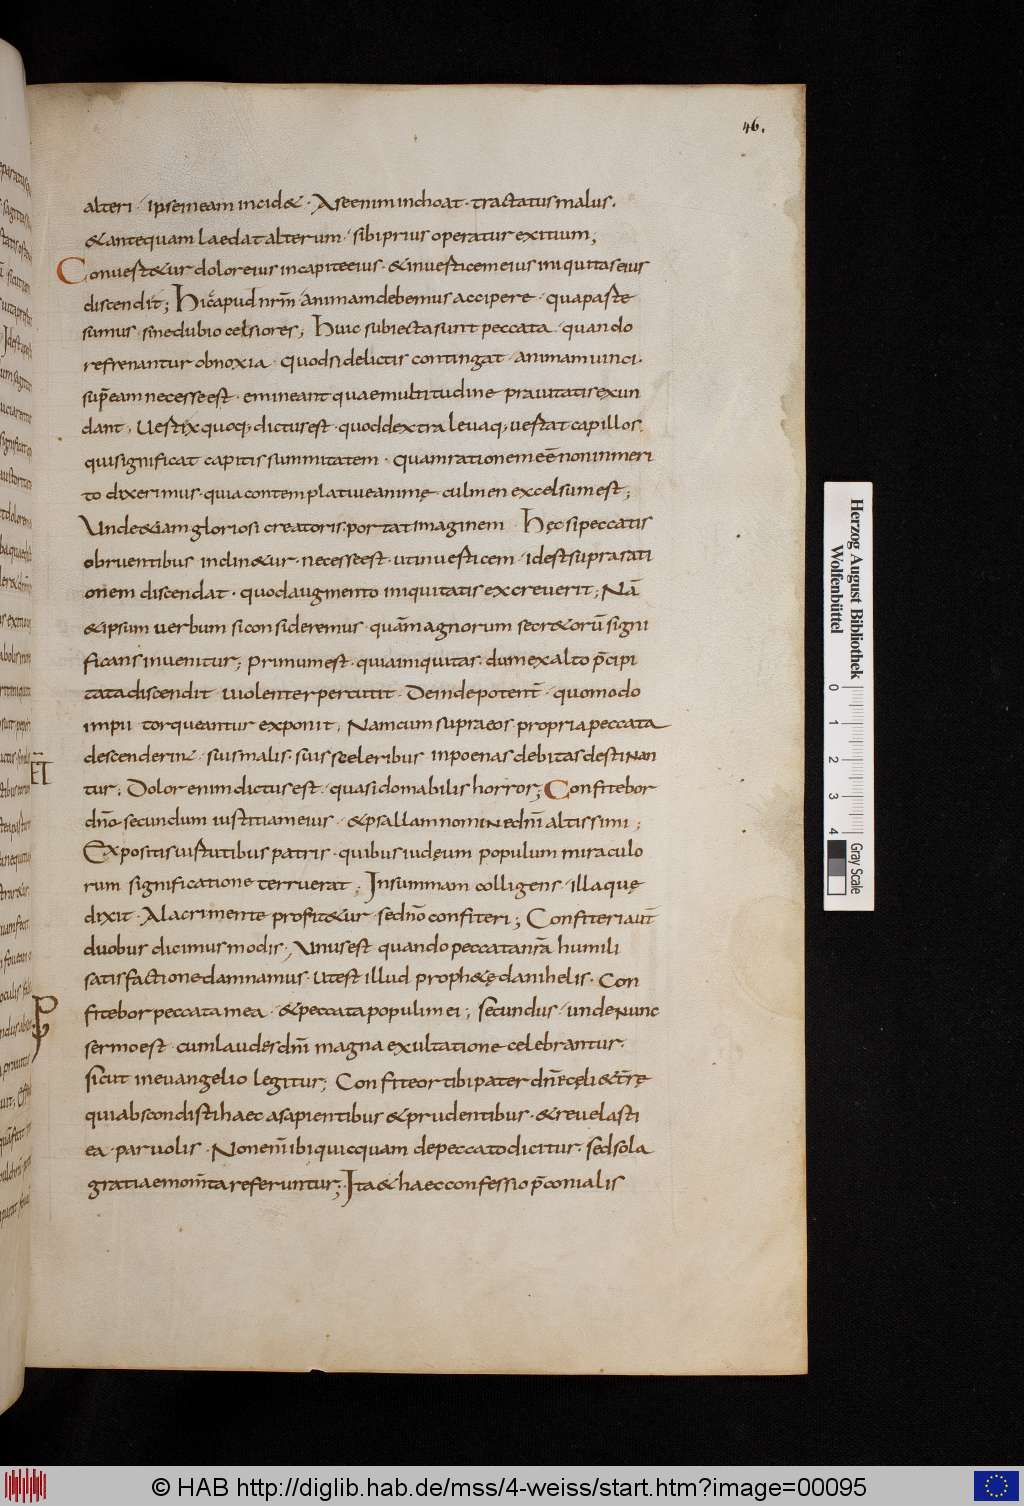 46.
alteri · ipse in eam incid& · A se enim inchoat · tractatus malus ·
& antequam laedat alterum · sibi prius operatur exitium;
Conuest&ur dolor eius in capite eius · & in uesticem eius iniquitas eius
discendit; Hic apud nrm̄ animam debemus accipere · qua paste
sumus · sine dubio celsiores; Huic subiecta sunt peccata · quando
refrenantur obnoxia · quodsi delictis contingat · animam uinci ·
sup̄ eam necesse est · emineant quae multitudine prauitatis exun
dant; Uestix quoq; dictus est · quod dextra leuaq; uestat capillos ·
qui significat capitis summitatem · quam rationem eē non inmeri
to dixerimus · quia contemplatiue animę culmen excelsum est;
Unde &iam gloriosi creatoris portat imaginem · Hęc si peccatis
obruentibus inclin&ur · necesse est · ut in uesticem · id est supra rati
onem discendat · quod augmento iniquitatis excreuerit; Nā
& ipsum uerbum si consideremus · quā magnorum secr&orū signi
ficans inuenitur; primum est · quia iniquitas · dum ex alto p̄cipi
tata discendit uiolenter percutit · Deinde potent̄ · quomodo
impii torqueantur exponit; Nam cum supra eos propria peccata
descenderint · suis malis · suis sceleribus in poenas debitas destinan
tur; Dolor enim dictus est · quasi domabilis horror; Confitebor
dn̄o secundum iustitiam eius · & psallam nomine dnī altissimi;
Expositis uistutibus patris · quibus iudęum populum miraculo
rum significatione terruerat; In summam colligens · illa quę
dixit · Alacri mente profit&ur · se dn̄o confiteri; Confiteri aut̄
duobus dicimus modis · Unus est quando peccata nr̄a humili
satisfactione damnamus · ut est illud proph&ę danihelis · Con
fitebor peccata mea · & peccata populi mei; secundus · unde nunc
sermo est · cum laudes dn̄i magna exultatione celebrantur ·
sicut in euangelio legitur; Confiteor tibi pater dn̄e cęli & t̄rę
qui abscondisti haec a sapientibus & prudentibus · & reuelasti
ea · paruolis · Non enī ibi quicquam de peccato dicitur · sed sola
gratia e momta referuntur; Ita & haec confessio p̄conialis
Herzog August Bibliothek
Wolfenbüttel
0 1 2 3 4
Gray Scale
© HAB http://diglib.hab.de/mss/4-weiss/start.htm?image=00095